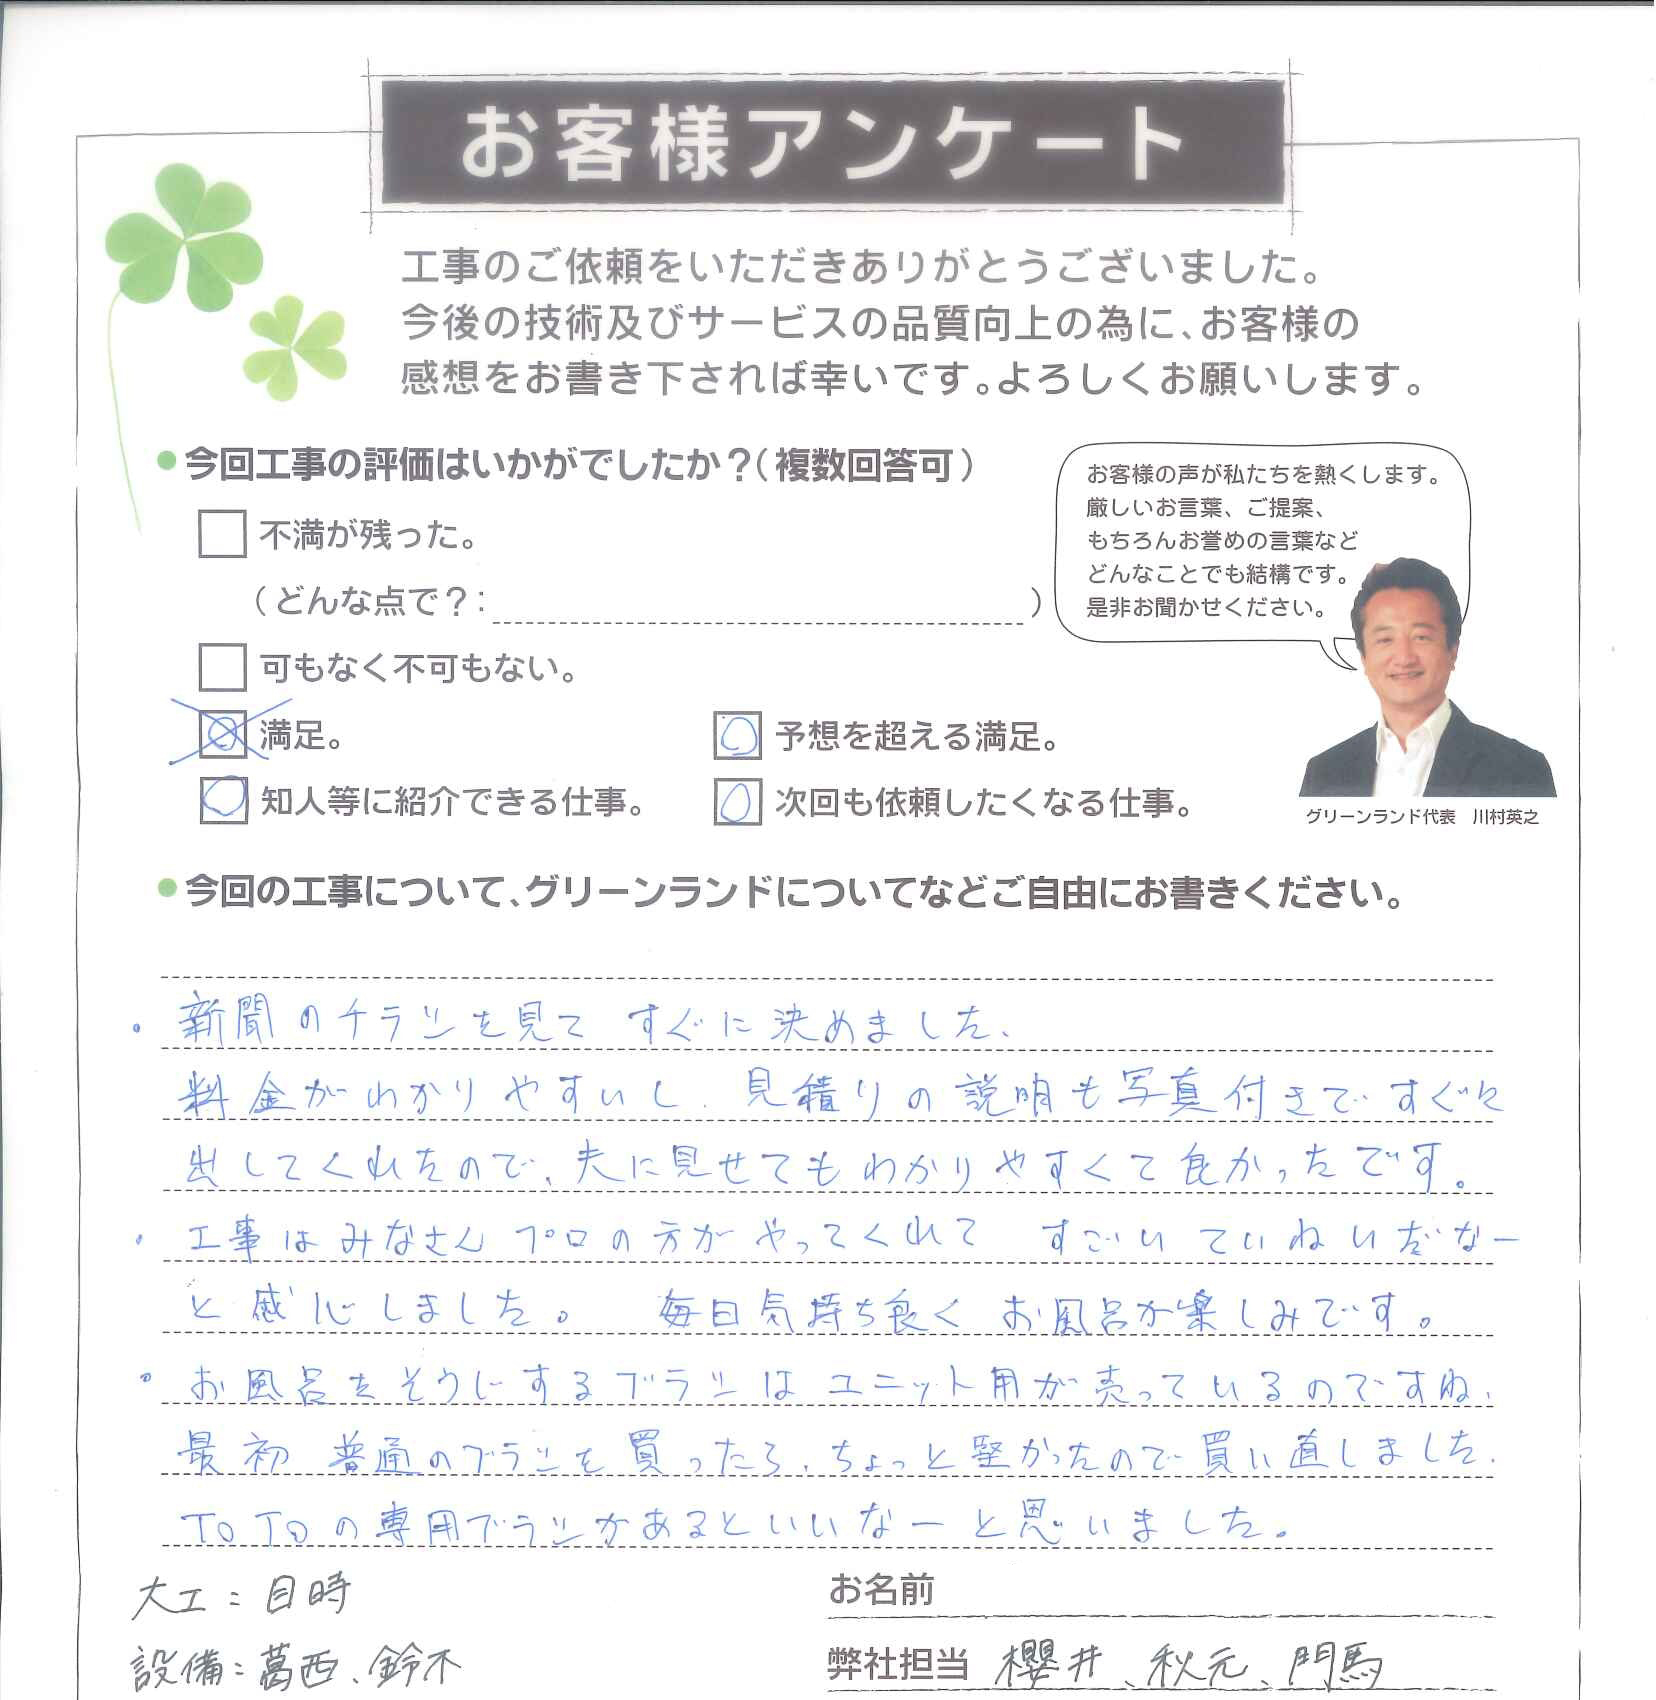 お客様アンケート
工事のご依頼をいただきありがとうございました。
今後の技術及びサービスの品質向上の為に、お客様の
感想をお書き下されば幸いです。よろしくお願いします。
●今回工事の評価はいかがでしたか?(複数回答可)
不満が残った。
(どんな点で?: )
可もなく不可もない。
満足。
予想を超える満足。
知人等に紹介できる仕事。
次回も依頼したくなる仕事。
お客様の声が私たちを熱くします。
厳しいお言葉、ご提案、
もちろんお誉めの言葉など
どんなことでも結構です。
是非お聞かせください。
グリーンランド代表 川村英之
●今回の工事について、グリーンランドについてなどご自由にお書きください。
・新聞のチラシを見て すぐに決めました、
料金がわかりやすいし、見積りの説明も写真付きですぐに
出してくれたので、夫に見せてもわかりやすくて良かったです。
・工事はみなさんプロの方がやってくれて すごいていねいだなー
と感心しました。 毎日気持ち良く お風呂が楽しみです。
・お風呂をそうじするブラシは ユニット用が売っているのですね、
最初 普通のブラシを買ったら、ちょっと堅かったので買い直しました、
TOTOの専用ブラシがあるといいなーと思いました。
大工:目時
設備:葛西、鈴木
お名前
弊社担当 櫻井、秋元、門馬